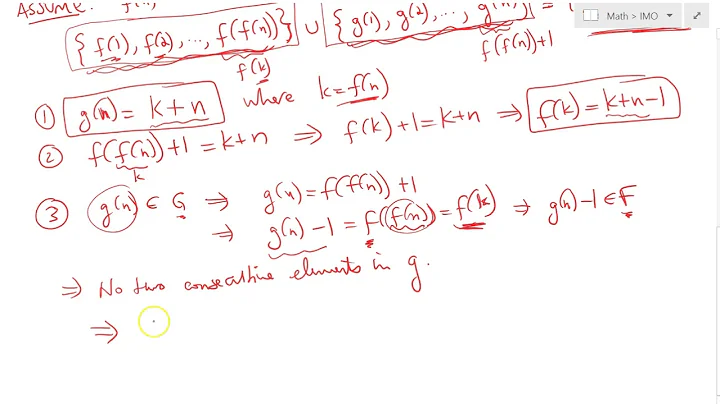 ASSUME: f(1),
{ f(1), f(2), ..., f(f(n)) } ∪ { g(1), g(2), ..., g(n) } =
f(k)
f(f(n))+1
Math > IMO
① g(n) = k+n where k=f(n)
② f(f(n))+1 = k+n ⇒ f(k)+1=k+n ⇒ f(k)=k+n-1
k
③ g(n) ∈ G ⇒ g(n)=f(f(n))+1
⇒ g(n)-1 = f(f(n)) = f(k) ⇒ g(n)-1 ∈ F
⇒ No two consecutive elements in g.
⇒